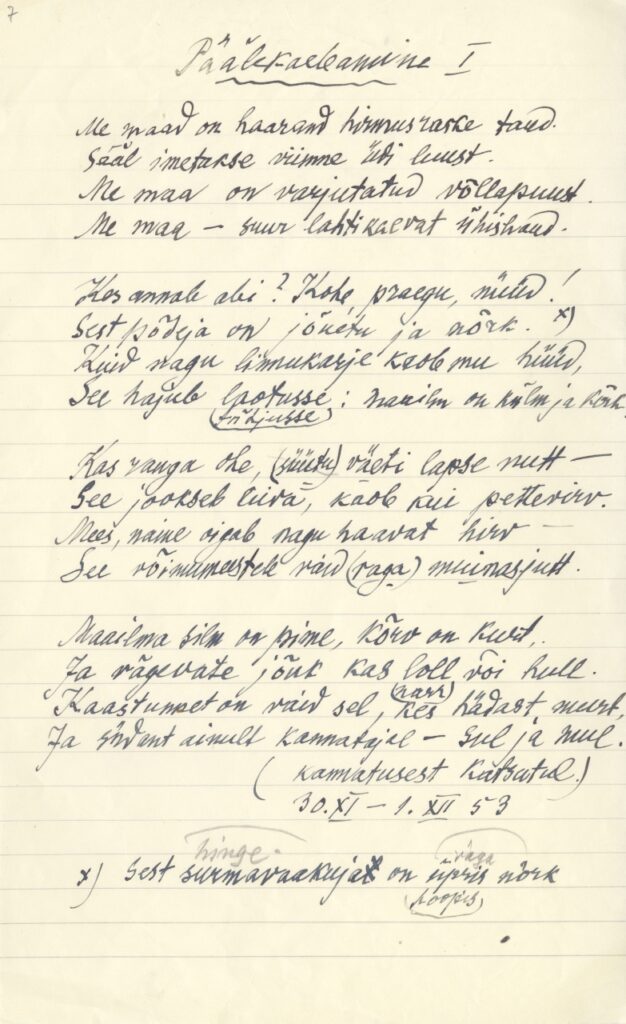 7
Päälekaebamine I
Me maad on haarand hirmusraske taud.
Sääl imetakse viimne üdi luust.
Me maa on varjutatud võllapuust.
Me maa – suur lahtikaevat ühishaud.
Kes annab abi? Kohe, praegu, nüüd!
Sest põdeja on jõuetu ja nõrk. x)
Kuid nagu linnukarje kaob mu hüüd,
See hajub laotusse: maailm on külm ja kõrk
(tühjusse)
Kas rauga ohe, (süütu) väeti lapse nutt –
See jookseb liiva, kaob kui pettevirv.
Mees, naine oigab nagu haavat hirv –
See võimumeestele vaid (vaga) muinasjutt.
Maailma silm on pime, kõrv on kurt,
Ja vägevate jõuk kas loll või hull.
(narr)
Kaastunnet on vaid sel, kes hädast murt,
Ja südant ainult kannatajal – sul ja mul.
(kannatusest katsutul.)
30.XI – 1. XII 53
hinge- väga
x) Sest surmavaakuja on üpris nõrk
(hoopis)